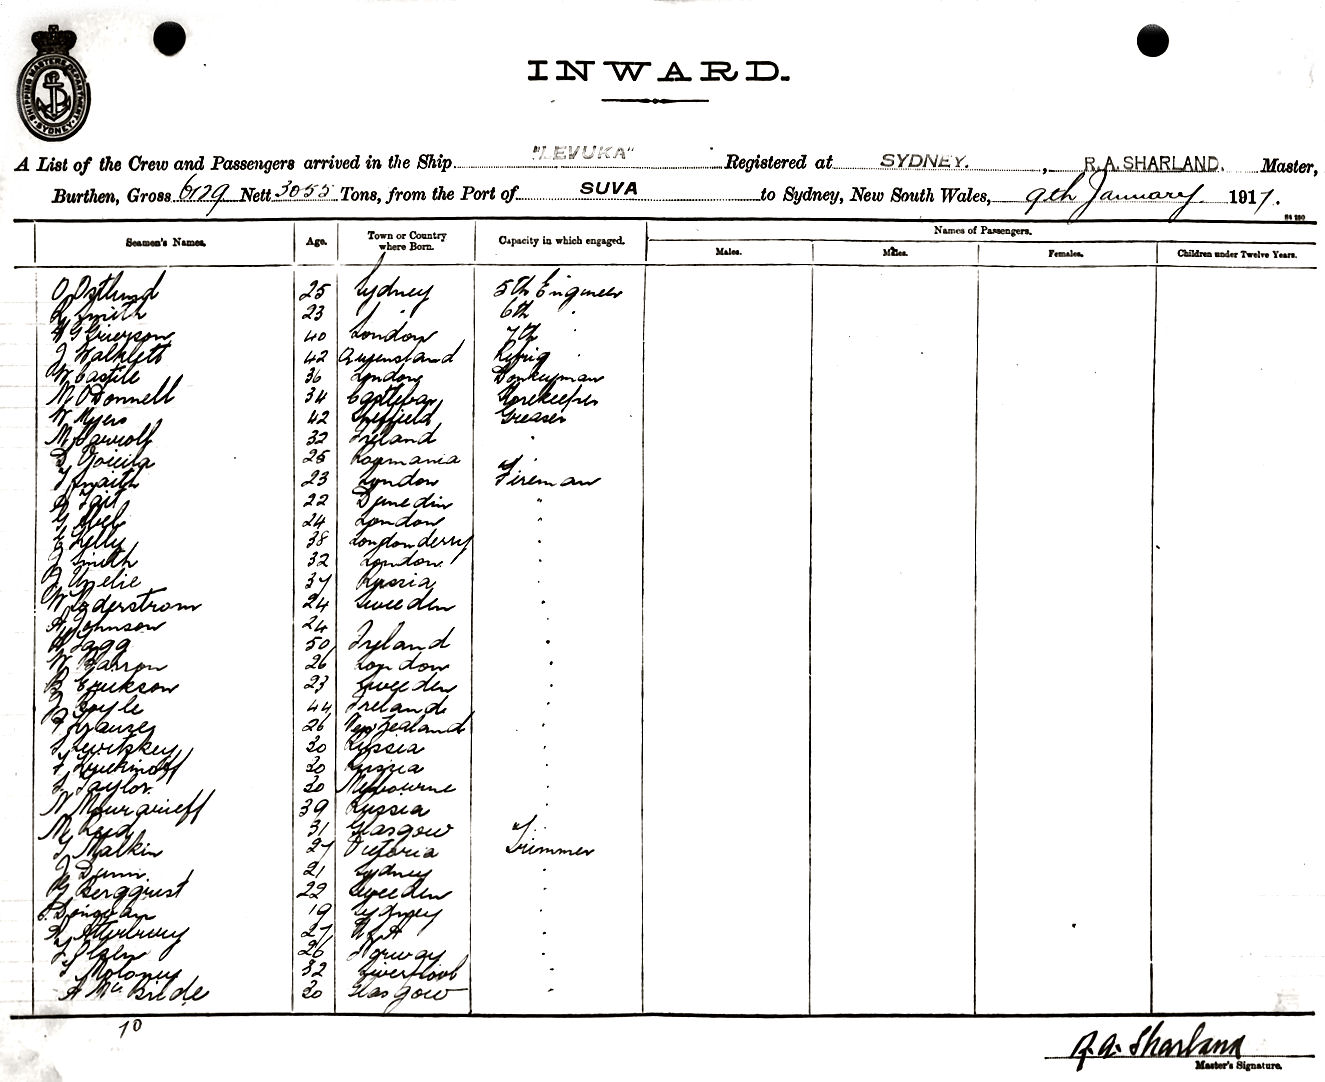 SHIPPING MASTERS DEPARTMENT SYDNEY
INWARD.
A List of the Crew and Passengers arrived in the Ship "LEVUKA" Registered at SYDNEY, R.A. SHARLAND. Master,
Burthen, Gross 6129 Nett 3055 Tons, from the Port of SUVA to Sydney, New South Wales, 9th January 1917.
Names of Passengers.
Seamen's Names. Age. Town or Country where Born. Capacity in which engaged. Males. Males. Females. Children under Twelve Years.
O Ostlund 25 Sydney 5th Engineer
R Smith 23 " " 6th "
G Grierson 40 London 7th "
42 Queensland Refrig "
W Castle 36 London Donkeyman
M O'Donnell 34 Castlebar Storekeeper
W Myers 42 Sheffield Greaser
M Carroll 32 Ireland "
25 Roumania "
T Smith 23 London Fireman
Tait 22 Dunedin "
G Abel 24 London "
Kelly 38 Londonderry "
J Smith 32 London "
37 Russia "
W Soderstrom 24 Sweeden "
A Johnson 24 "
Fagg 50 Ireland "
W Barron 26 London "
B Erikson 23 Sweeden "
J Boyle 44 Ireland "
26 New Zealand "
30 Russia "
30 Russia "
Taylor 30 Melbourne "
N Mouravieff 39 Russia "
M Reid 31 Glasgow "
G Malkin 27 Victoria Trimmer
J Dunn 21 Sydney "
Bergqvist 22 Sweeden "
Donovan 19 Sydney "
Atterbury 27 "
Olsen 26 Norway "
T Moloney 32 Liverpool "
A McBride 30 Glasgow "
70
R.A. Sharland
Master's Signature.